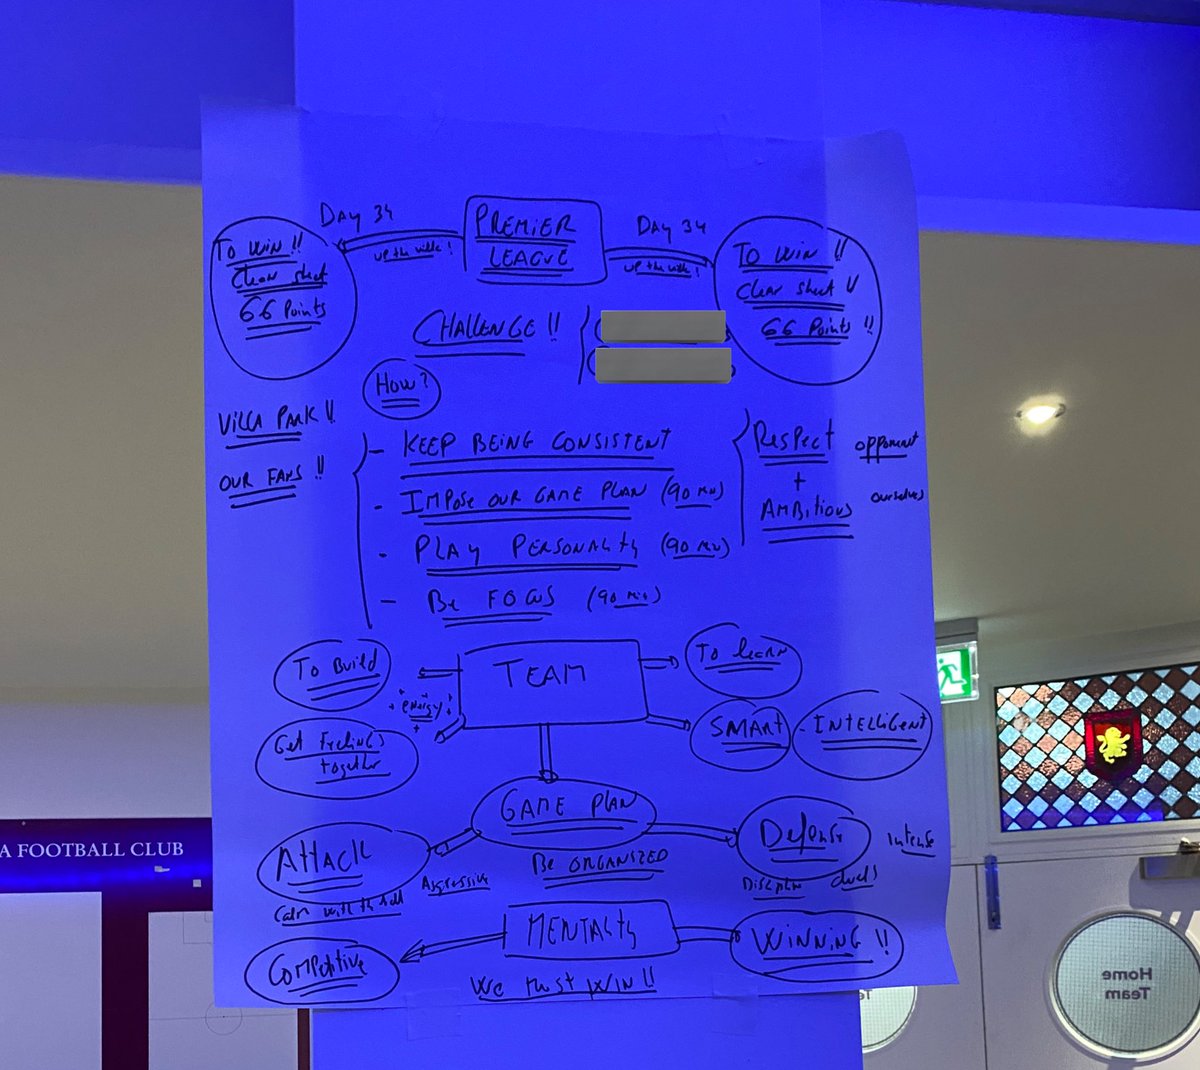 DAY 34
PREMIER
LEAGUE
DAY 34
UP the villa!
UP the villa!
TO WIN!!
Clean sheet
66 Points
TO WIN!!
Clean sheet!!
66 Points!!
CHALLENGE!!
HOW?
VILLA PARK!!
OUR FANS!!
- KEEP BEING CONSISTENT
- IMPOSE OUR GAME PLAN (90 MIN)
- PLAY PERSONALITY (90 MIN)
- BE FOCUS (90 MIN)
RESPECT opponent
+
AMBITIOUS ourselves
TEAM
TO Build
energy
Get Feelings
together
TO learn
SMART - INTELLIGENT
GAME PLAN
BE ORGANIZED
ATTACK
Aggressive
Calm with the ball
Defense
intense
duels
MENTALITY
COMPETITIVE
WINNING!!
We must WIN!!
A FOOTBALL CLUB
Home
Team